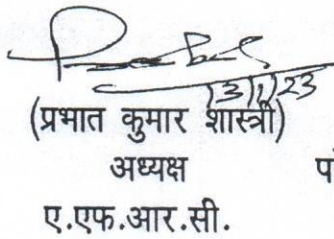 13/1/23
(प्रभात कुमार शास्त्री)
अध्यक्ष
ए.एफ.आर.सी.